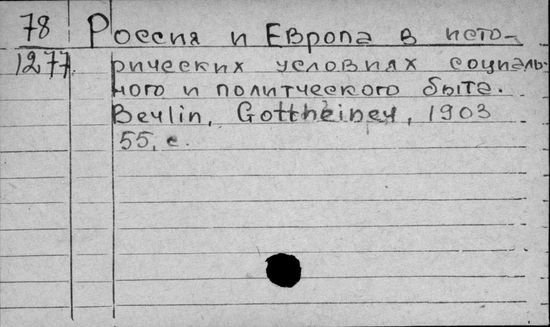 78 Россия и Европа в исто-
1277. рических условиях социаль-
ного и политческого быта.
Berlin, Gottheiner, 1903
55, с.